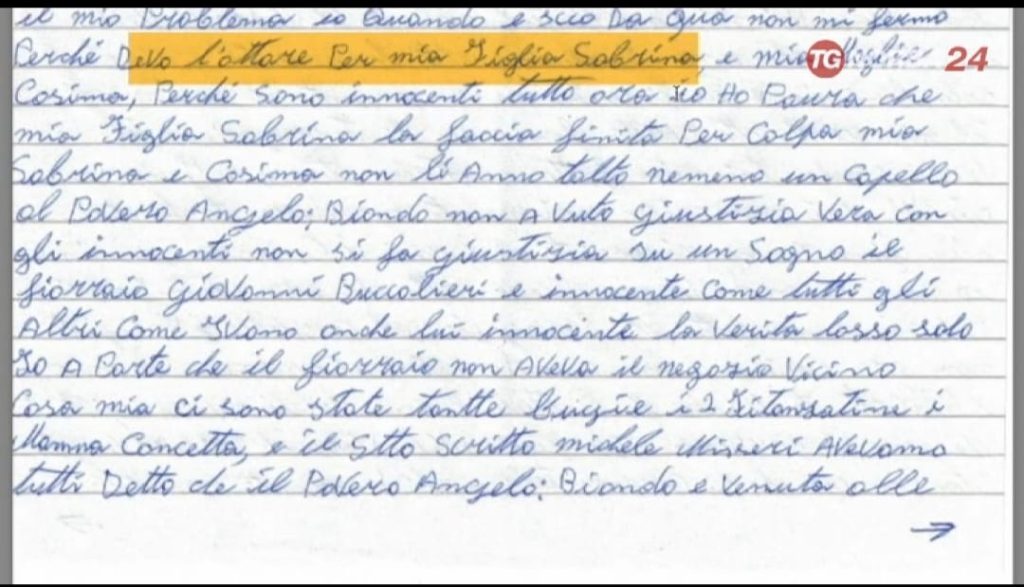 il mio Problema io Quando e scio Da qua non mi fermo
Perché DeVo l'ottare Per mia Figlia Sabrina, e mia Moglie
TG 24
Cosima, Perché sono innocenti tutto ora io Ho Paura che
mia Figlia Sabrina la faccia finita Per Colpa mia
Sabrina e Cosima non li Anno tolto nemeno un Capello
al PoVero Angelo; Biondo non A Vuto giustizia Vera con
gli innocenti non si fa giustizia su un Sogno il
fiorraio GioVanni Buccolieri e innocente Come tutti gli
Altri Come IVano anche lui innocente la Verita lasso solo
Io A Parte che il fiorraio non AVeVa il negozio Vicino
Casa mia ci sono state tantte bugie i 2 i
Mamna Concetta, e il Stto Scritto michele Misseri AVeVamo
tutti Detto che il PoVero Angelo; Biondo e Venuta alle
→